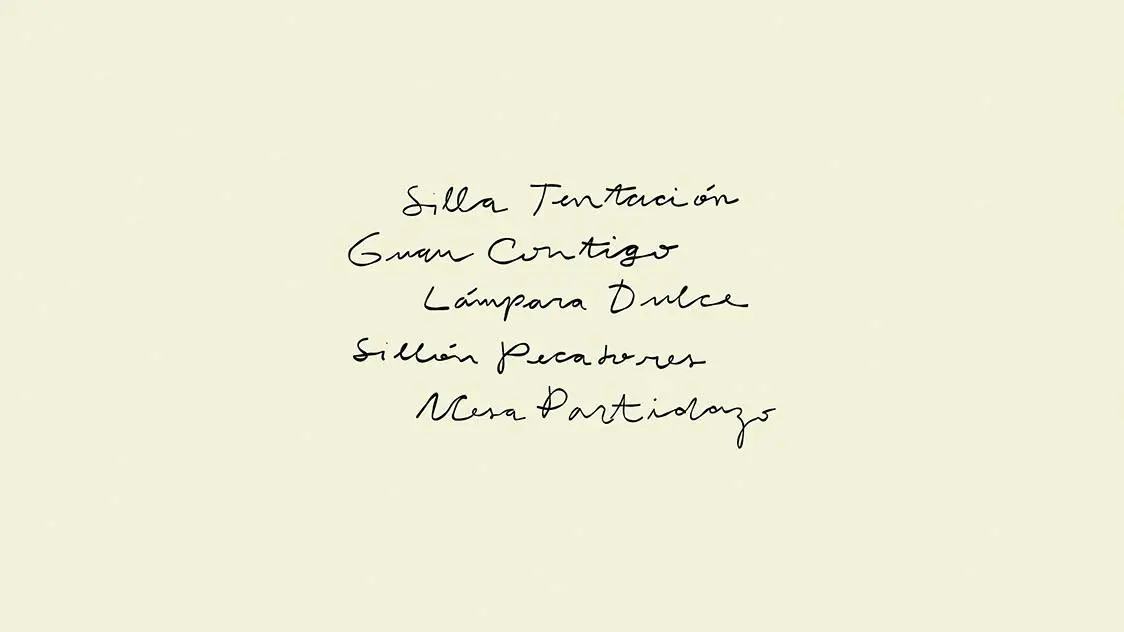 Silla Tentación
Guau Contigo
Lámpara Dulce
Sillón Pecadores
Mesa Partidazo